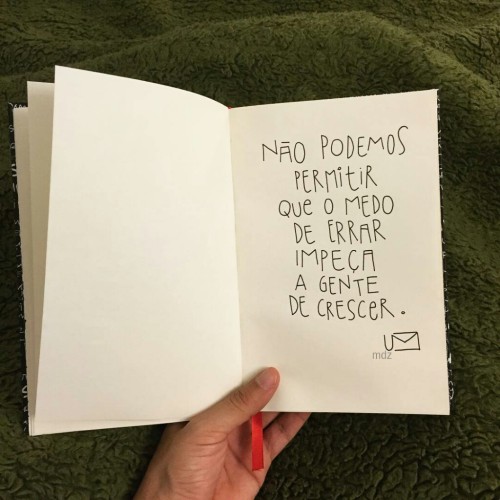 NÃO PODEMOS
PERMITIR
QUE O MEDO
DE ERRAR
IMPEÇA
A GENTE
DE CRESCER.
U
mdz